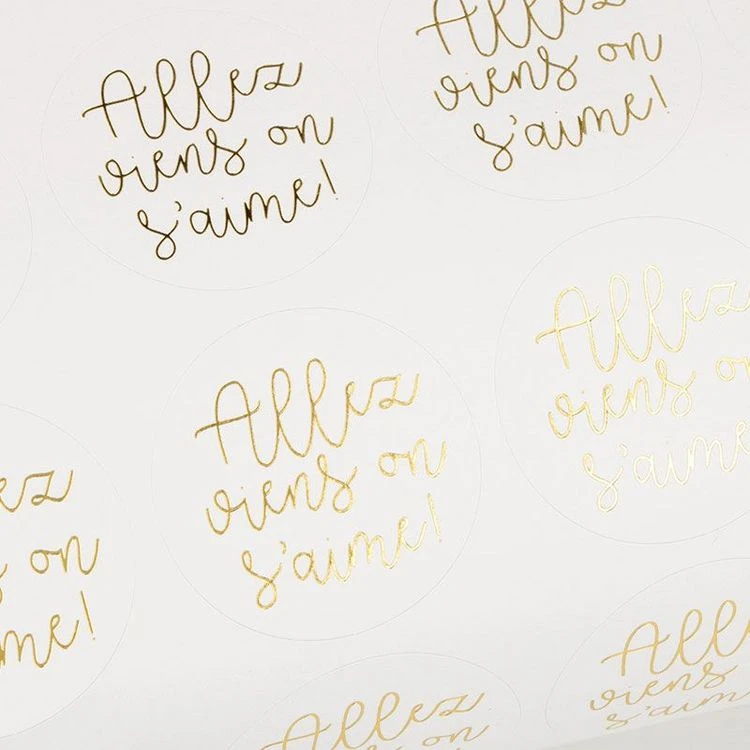 Allez
viens on
s'aime!
Allez
viens on
s'aime!
Allez
viens on
s'aime!
Allez
viens on
s'aime!
ez
on
me!
Allez
viens on
All
viens
s'aim